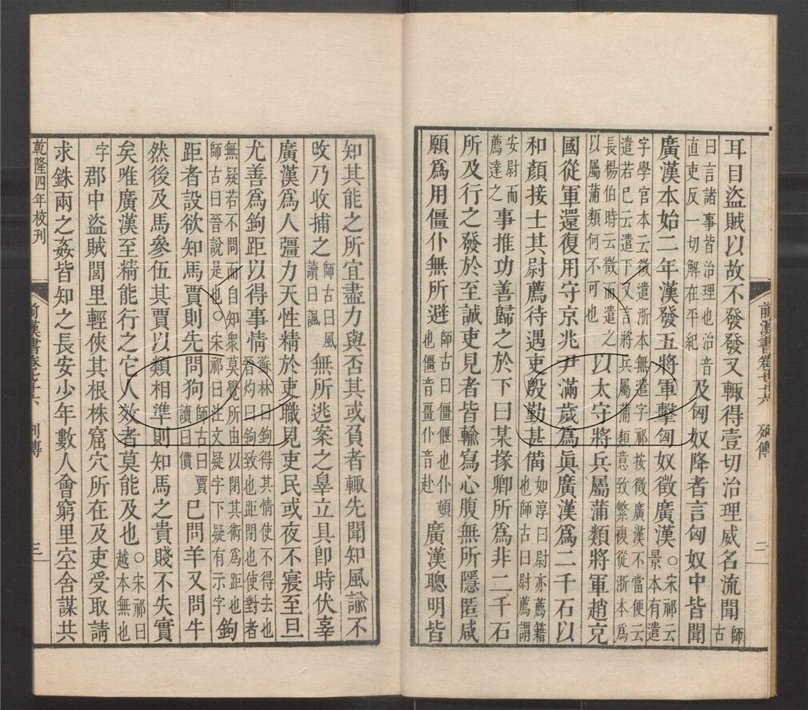 耳目盜賊以故不發發又輒得壹切治理威名流聞師古
曰言諸事皆治理也治音直吏反一切解在平紀及匈奴降者言匈奴中皆聞
廣漢本始二年漢發五將軍擊匈奴徵廣漢○宋祁云景本有遣
字學官本云徵遣浙本無遣字祁按徵廣漢不當便云遣若已云遣下又言將兵屬蒲類意致繁複從浙本爲
長楊伯時云徵而遣之以屬蒲類何不可也以太守將兵屬蒲類將軍趙充
國從軍還復用守京兆尹滿歲爲眞廣漢爲二千石以
和顏接士其尉薦待遇吏殷勤甚僃如淳曰尉亦薦藉也師古曰尉薦謂
安尉而薦達之事推功善歸之於下曰某掾卿所爲非二千石
所及行之發於至誠吏見者皆輸寫心腹無所隱匿咸
願爲用僵仆無所避師古曰僵偃也仆頓也僵音畺仆音赴廣漢聰明皆
前漢書卷七十六 列傳 二
知其能之所宜盡力與否其或負者輒先聞知風諭不
攺乃收捕之師古曰風讀曰諷無所逃案之辠立具卽時伏辜
廣漢爲人彊力天性精於吏職見吏民或夜不寢至旦
尤善爲鉤距以得事情蘇林曰鉤得其情使不得去也晉灼曰鉤致也距閉也使對者
無疑若不問而自知衆莫覺所由以閉其術爲距也師古曰晉說是也○宋祁曰注文疑字下疑有示字鉤
距者設欲知馬賈則先問狗師古曰賈讀曰價已問羊又問牛
然後及馬參伍其賈以類相準則知馬之貴賤不失實
矣唯廣漢至精能行之它人效者莫能及也○宋祁曰越本無也
字郡中盜賊閭里輕俠其根株窟穴所在及吏受取請
求銖兩之姦皆知之長安少年數人會窮里空舍謀共
乾隆四年校刋 前漢書卷七十六 列傳 三